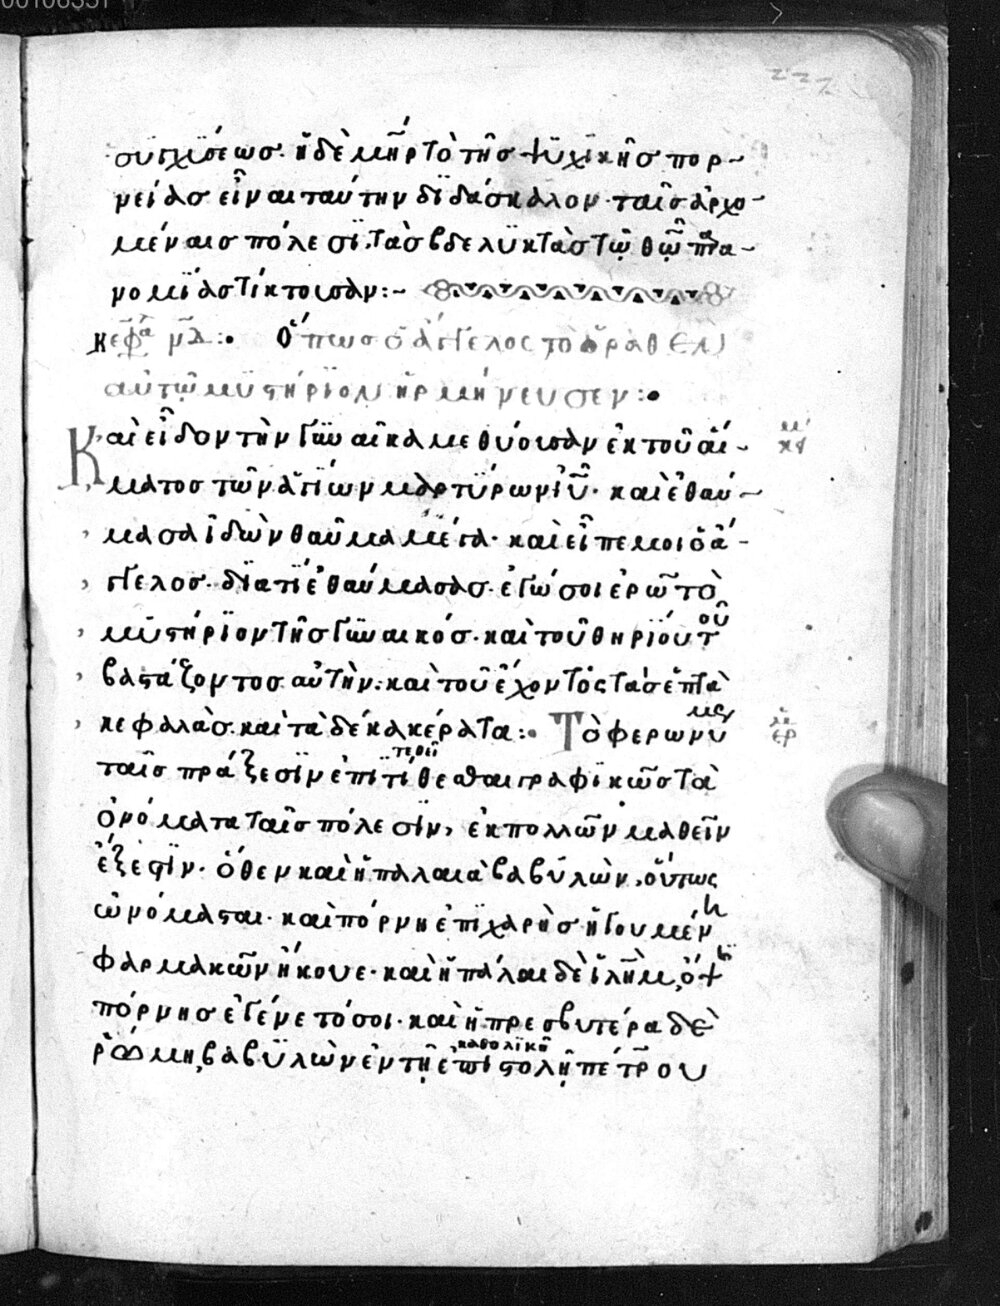 00106351
227
συγχύσεως. ἢ δὲ μη̅ρ τὸ τῆς ψυχικῆς πορ-
νείας εἶναι ταύτην διδάσκαλον. ταῖς ἀρχο-
μέναις πόλεσι, τὰς βδελυκτὰς τῷ θῷ παρα-
νομίας τίκτουσαν:-
κεφα μδ:. Ὅπως ὁ ἄγγελος τὸ ὁραθὲν
αὐτῷ μυστήριον ἡρμήνευσεν:.
Καὶ εἶδον τὴν γυναῖκα μεθύουσαν ἐκ τοῦ αἵ-
ματος τῶν ἁγίων μαρτύρων ιυ. καὶ ἐθαύ-
μασα ἰδὼν θαῦμα μέγα. καὶ εἶπε μοι ὁ ἄ-
γγελος. διατί ἐθαύμασας. ἐγώ σοι ἐρῶ τὸ
μυστήριον τῆς γυναικός. καὶ τοῦ θηρίου τοῦ
βαστάζοντος αὐτήν. καὶ τοῦ ἔχοντος τὰς ἑπτὰ
κεφαλὰς. καὶ τὰ δέκα κέρατα:. Τὸ φερωνύμως
ταῖς πράξεσιν ἐπιτίθεσθαι γραφικῶς τὰ
ὀνόματα ταῖς πόλεσιν, ἐκ πολλῶν μαθεῖν
ἔξεστιν. ὅθεν καὶ ἡ παλαιὰ βαβυλὼν, οὕτως
ὠνόμασται. καὶ πόρνη ἐπιχαρὴς ἡγουμένη
φαρμακῶν ἤκουε. καὶ ἡ πάλαι δὲ ἰλημ, ὄψις
πόρνης ἐγένετό σοι. καὶ ἡ πρεσβυτέρα δὲ
ῥώμη, βαβυλὼν ἐν τῇ καθολικῇ ἐπιστολῇ πέτρου